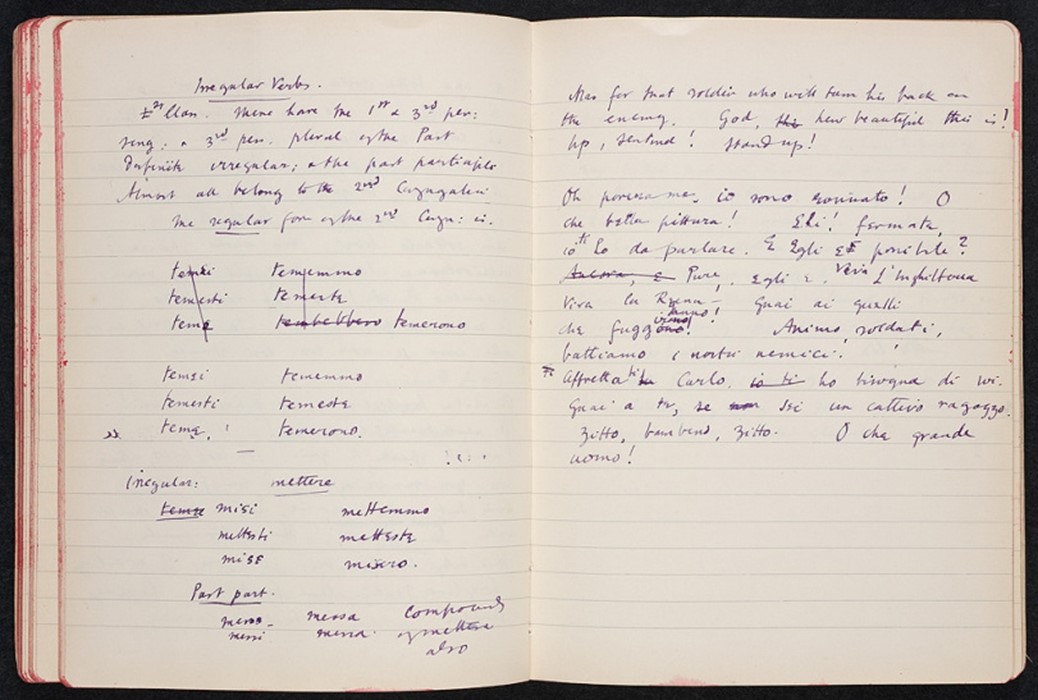 Irregular Verbs.
2nd Class. These have the 1st & 3rd per:
sing: & 3rd pers. plural of the Past
Definite irregular; & the past participle
Almost all belong to the 2nd Conjugation
The regular form of the 2nd Conju: is.
temei temmemmo
temesti temeste
temè tembebbero temerono
temei tememmo
temesti temeste
temè, temerono.
Irregular: mettere
teme misi mettemmo
mettesti metteste
mise misero.
Past part.
messo - messa compounds
messi messa. of mettere
also
Alas for that soldier who will turn his back on
the enemy. God, this how beautiful this is!
Up, sentinel! stand up!
Oh povera me, io sono rovinato! O
che bella pittura! Ehi! fermate,
io ti ho da parlare. È Egli è possibile?
Ancora, è Pure, egli è. Viva L'Inghilterra
Viva la Regina - Guai ai quelli
che fuggono! Animo, soldati,
battiamo i nostri nemici!
Affretta ti Carlo. io ti ho bisogno di vi.
Guai a te, se non sei un cattivo ragazzo.
Zitto, bambino, zitto. O che grande
uomo!